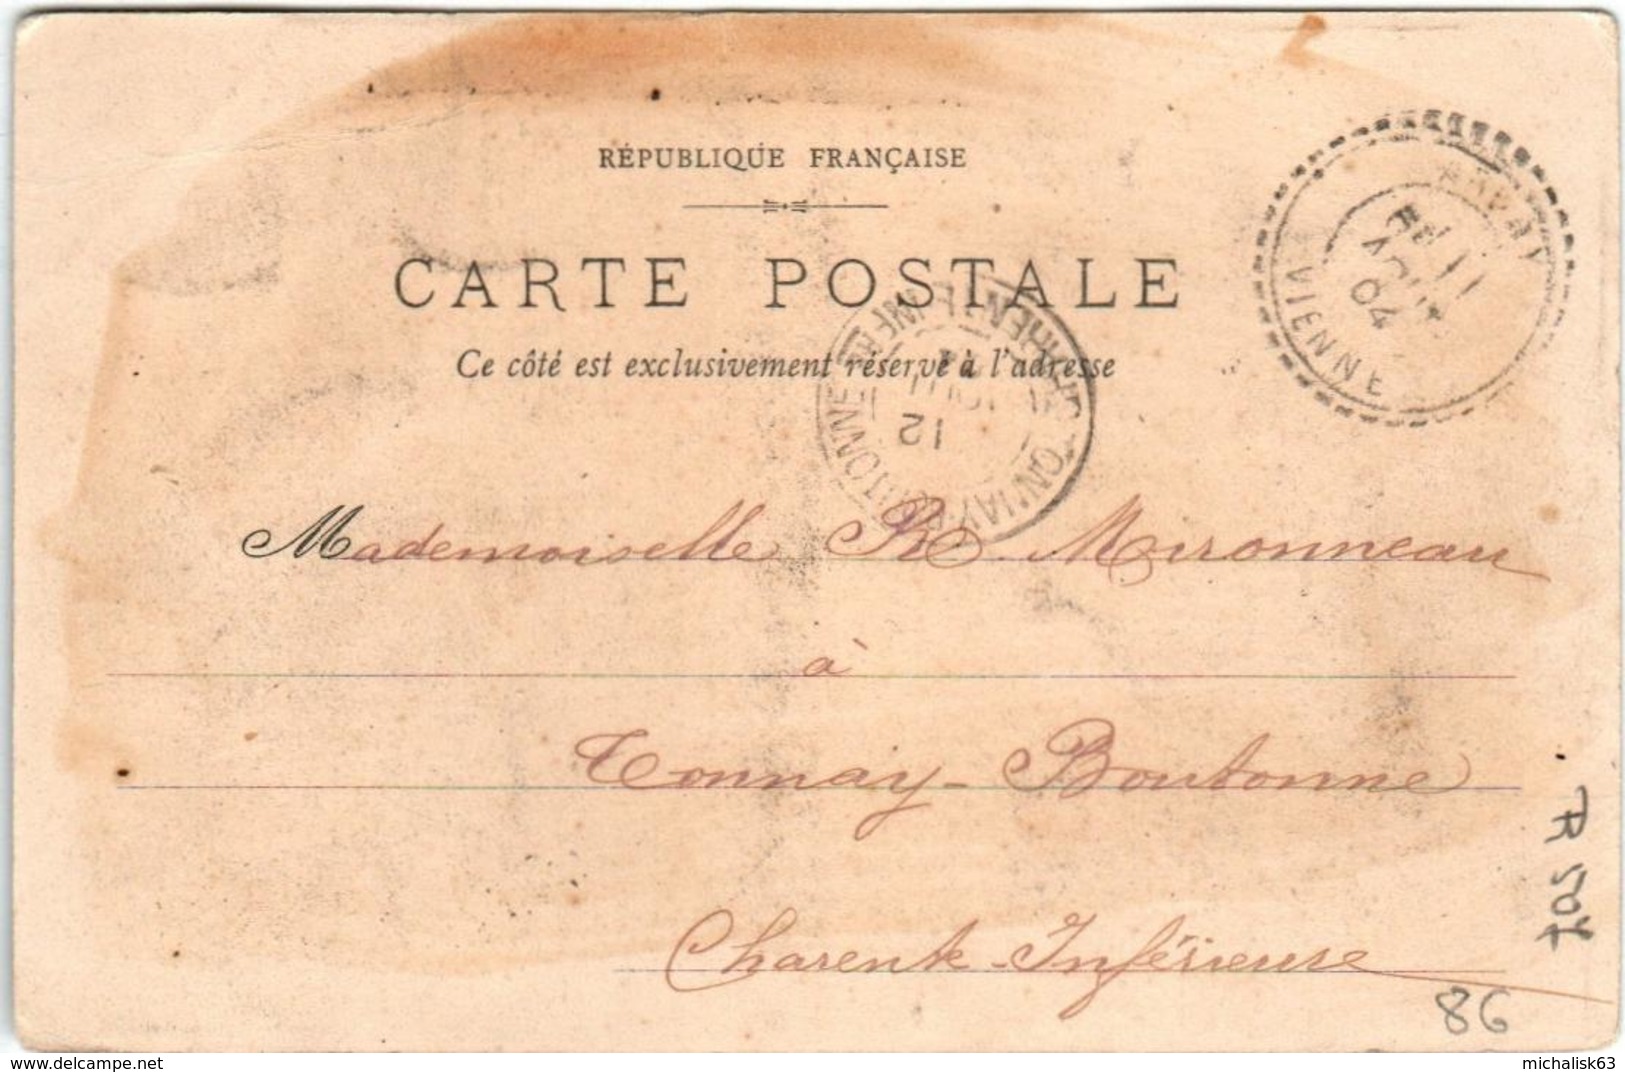 RÉPUBLIQUE FRANÇAISE
CARTE POSTALE
Ce côté est exclusivement réservé à l'adresse
VIENNE
11
AOUT
04
TONNAY-BOUTONNE
12
Mademoiselle R Moironneau
à
Tonnay-Boutonne
Charente-Inférieure
86
delcampe.net
michalisk63